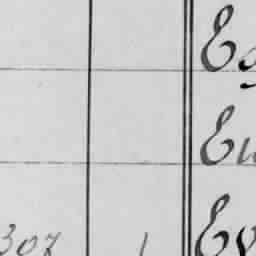 Es
Eu
307 1 Ev